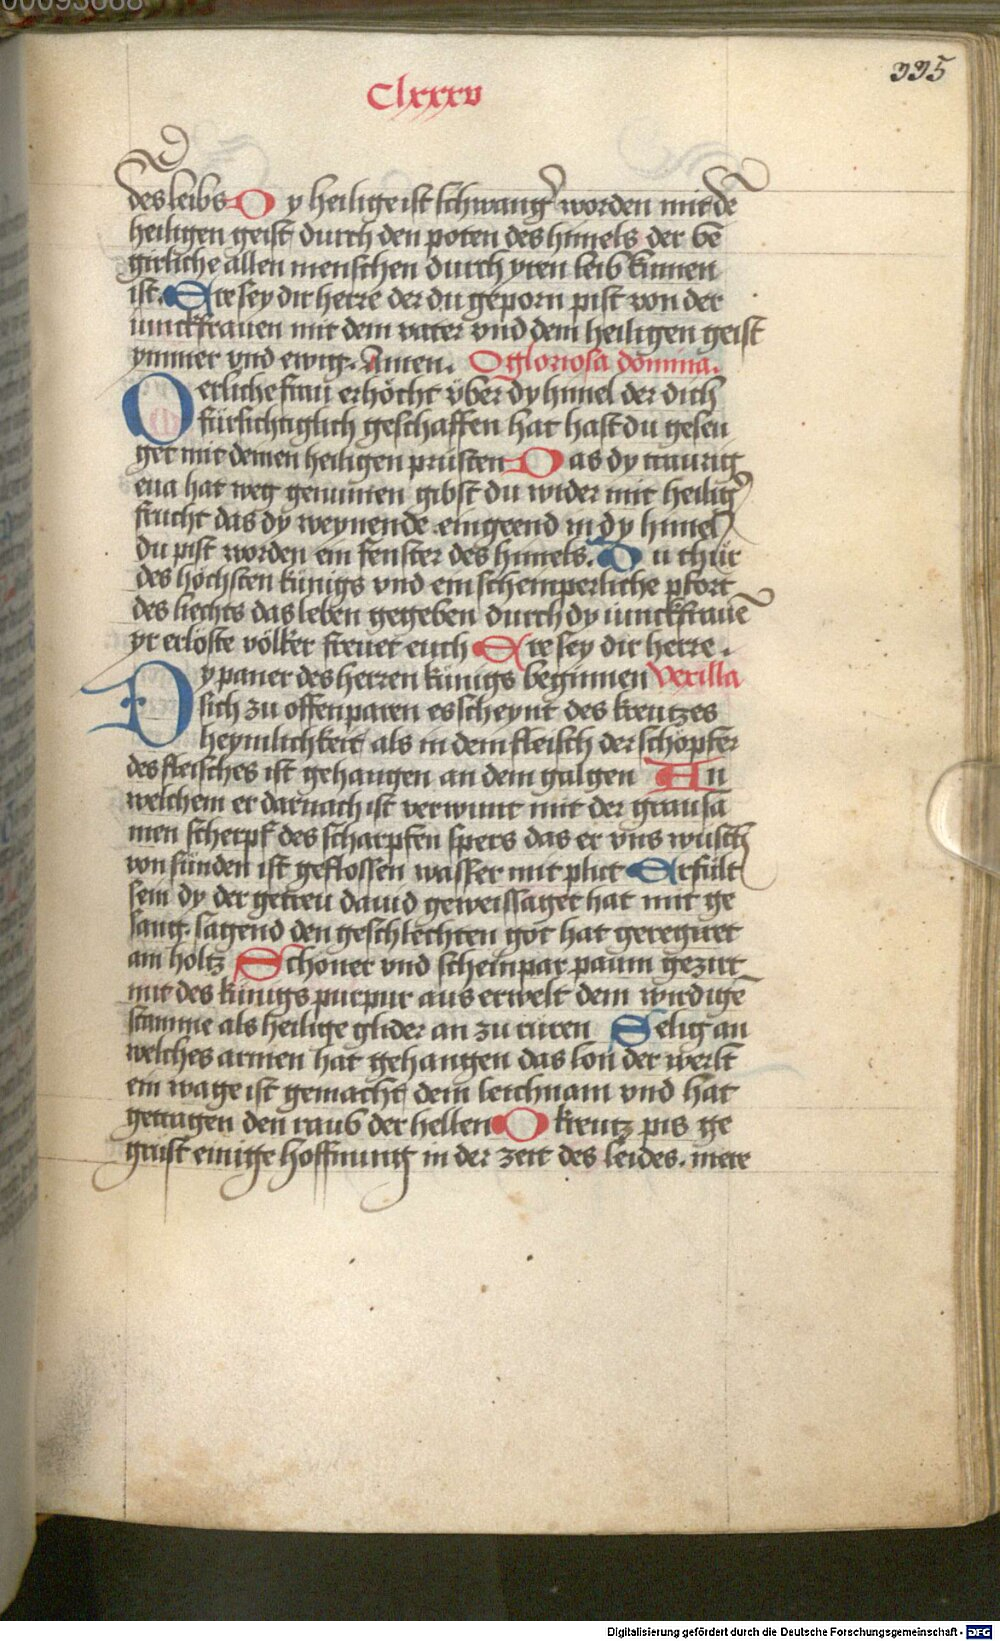 00093668
335
Clxxxv
des leibs Dy heilige ist schwang̃ worden mit dē
heiligen geist durch den poten des himels der be
girliche allen menschen durch yren leib kumen
ist. Ere sey dir herre der du geporn pist von der
iunckfrauen mit dem vater vnd dem heiligen geist
ymmer vnd ewig. Amen. O gloriosa domina.
O erliche frau erhöcht über dy himel der dich
fürsichtiglich geschaffen hat hast du geseu
get mit deinen heiligen prüsten Das dy traurig
eua hat weg genumen gibst du wider mit heilig̃
frucht das dy weynende eingeend in dy himel
du pist worden ein fenster des himels. Du thür
des höchsten künigs vnd ein schemperliche pfort
des liechts das leben gegeben durch dy iunckfrauē
yr erlöste völker freuet euch Ere sey dir herre.
Dy paner des herren künigs beginnen Vexilla
sich zu offenparen es scheynt des kreutzes
heymlichkeit als in dem fleisch der schöpfer
des fleisches ist gehangen an dem galgen An
welchem er darnach ist verwunt mit der grausa
men scherpf des scharpfen spers das er vns wusch
von sünden ist geflossen wasser mit plut Erfült
sein dy der getreu dauid geweissaget hat mit ge
sang. sagend den geschlechten got hat geregnet
am holtz Schöner vnd scheinpar paum gezirt
mit des künigs purpur aus erwelt dem wirdigē
stamme als heilige glider an zu rüren Selig an
welches armen hat gehangen das lon der werlt
ein wage ist gemacht dem leichnam vnd hat
getragen den raub der hellen O kreutz pis ge
grüst einige hoffnung in der zeit des leides. mere
Digitalisierung gefördert durch die Deutsche Forschungsgemeinschaft - DFG